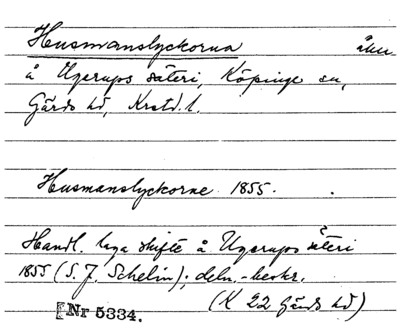 Husmanslyckorna åker
å Ugerups säteri, Köpinge sn,
Gärds hd, Krstd. l.
Husmanslyckorne 1855.
Handl. laga skifte å Ugerups säteri
1855 (S. J. Schelin); deln.-beskr.
(K 22 Gärds hd)
Nr 5334.